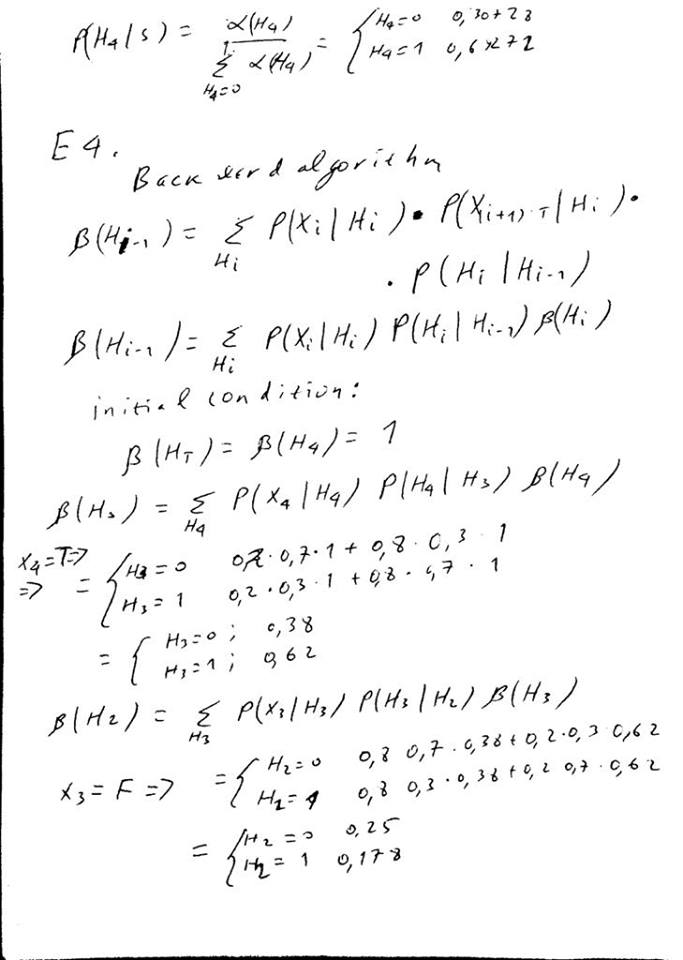 P(H₄|S) = α(H₄) / Σ_{H₄=0}^{1} α(H₄) = { H₄=0 0,30+28
H₄=1 0,6
E4.
Backward algorithm
β(H_{i-1}) = Σ_{Hi} P(Xi|Hi) • P(X_{i+1):T}|Hi) •
• P(Hi|H_{i-1})
β(H_{i-1}) = Σ_{Hi} P(Xi|Hi) P(Hi|H_{i-1}) β(Hi)
initial condition:
β(H_T) = β(H₄) = 1
β(H₃) = Σ_{H₄} P(X₄|H₄) P(H₄|H₃) β(H₄)
X₄=T=>
=> = { H₃=0 0,2·0,7·1 + 0,8·0,3·1
H₃=1 0,2·0,3·1 + 0,8·0,7·1
= { H₃=0; 0,38
H₃=1; 0,62
β(H₂) = Σ_{H₃} P(X₃|H₃) P(H₃|H₂) β(H₃)
X₃ = F => = { H₂=0 0,8 0,7·0,38+0,2·0,3 0,62
H₂=1 0,8 0,3·0,38+0,2 0,7·0,62
= { H₂=0 0,25
H₂=1 0,178